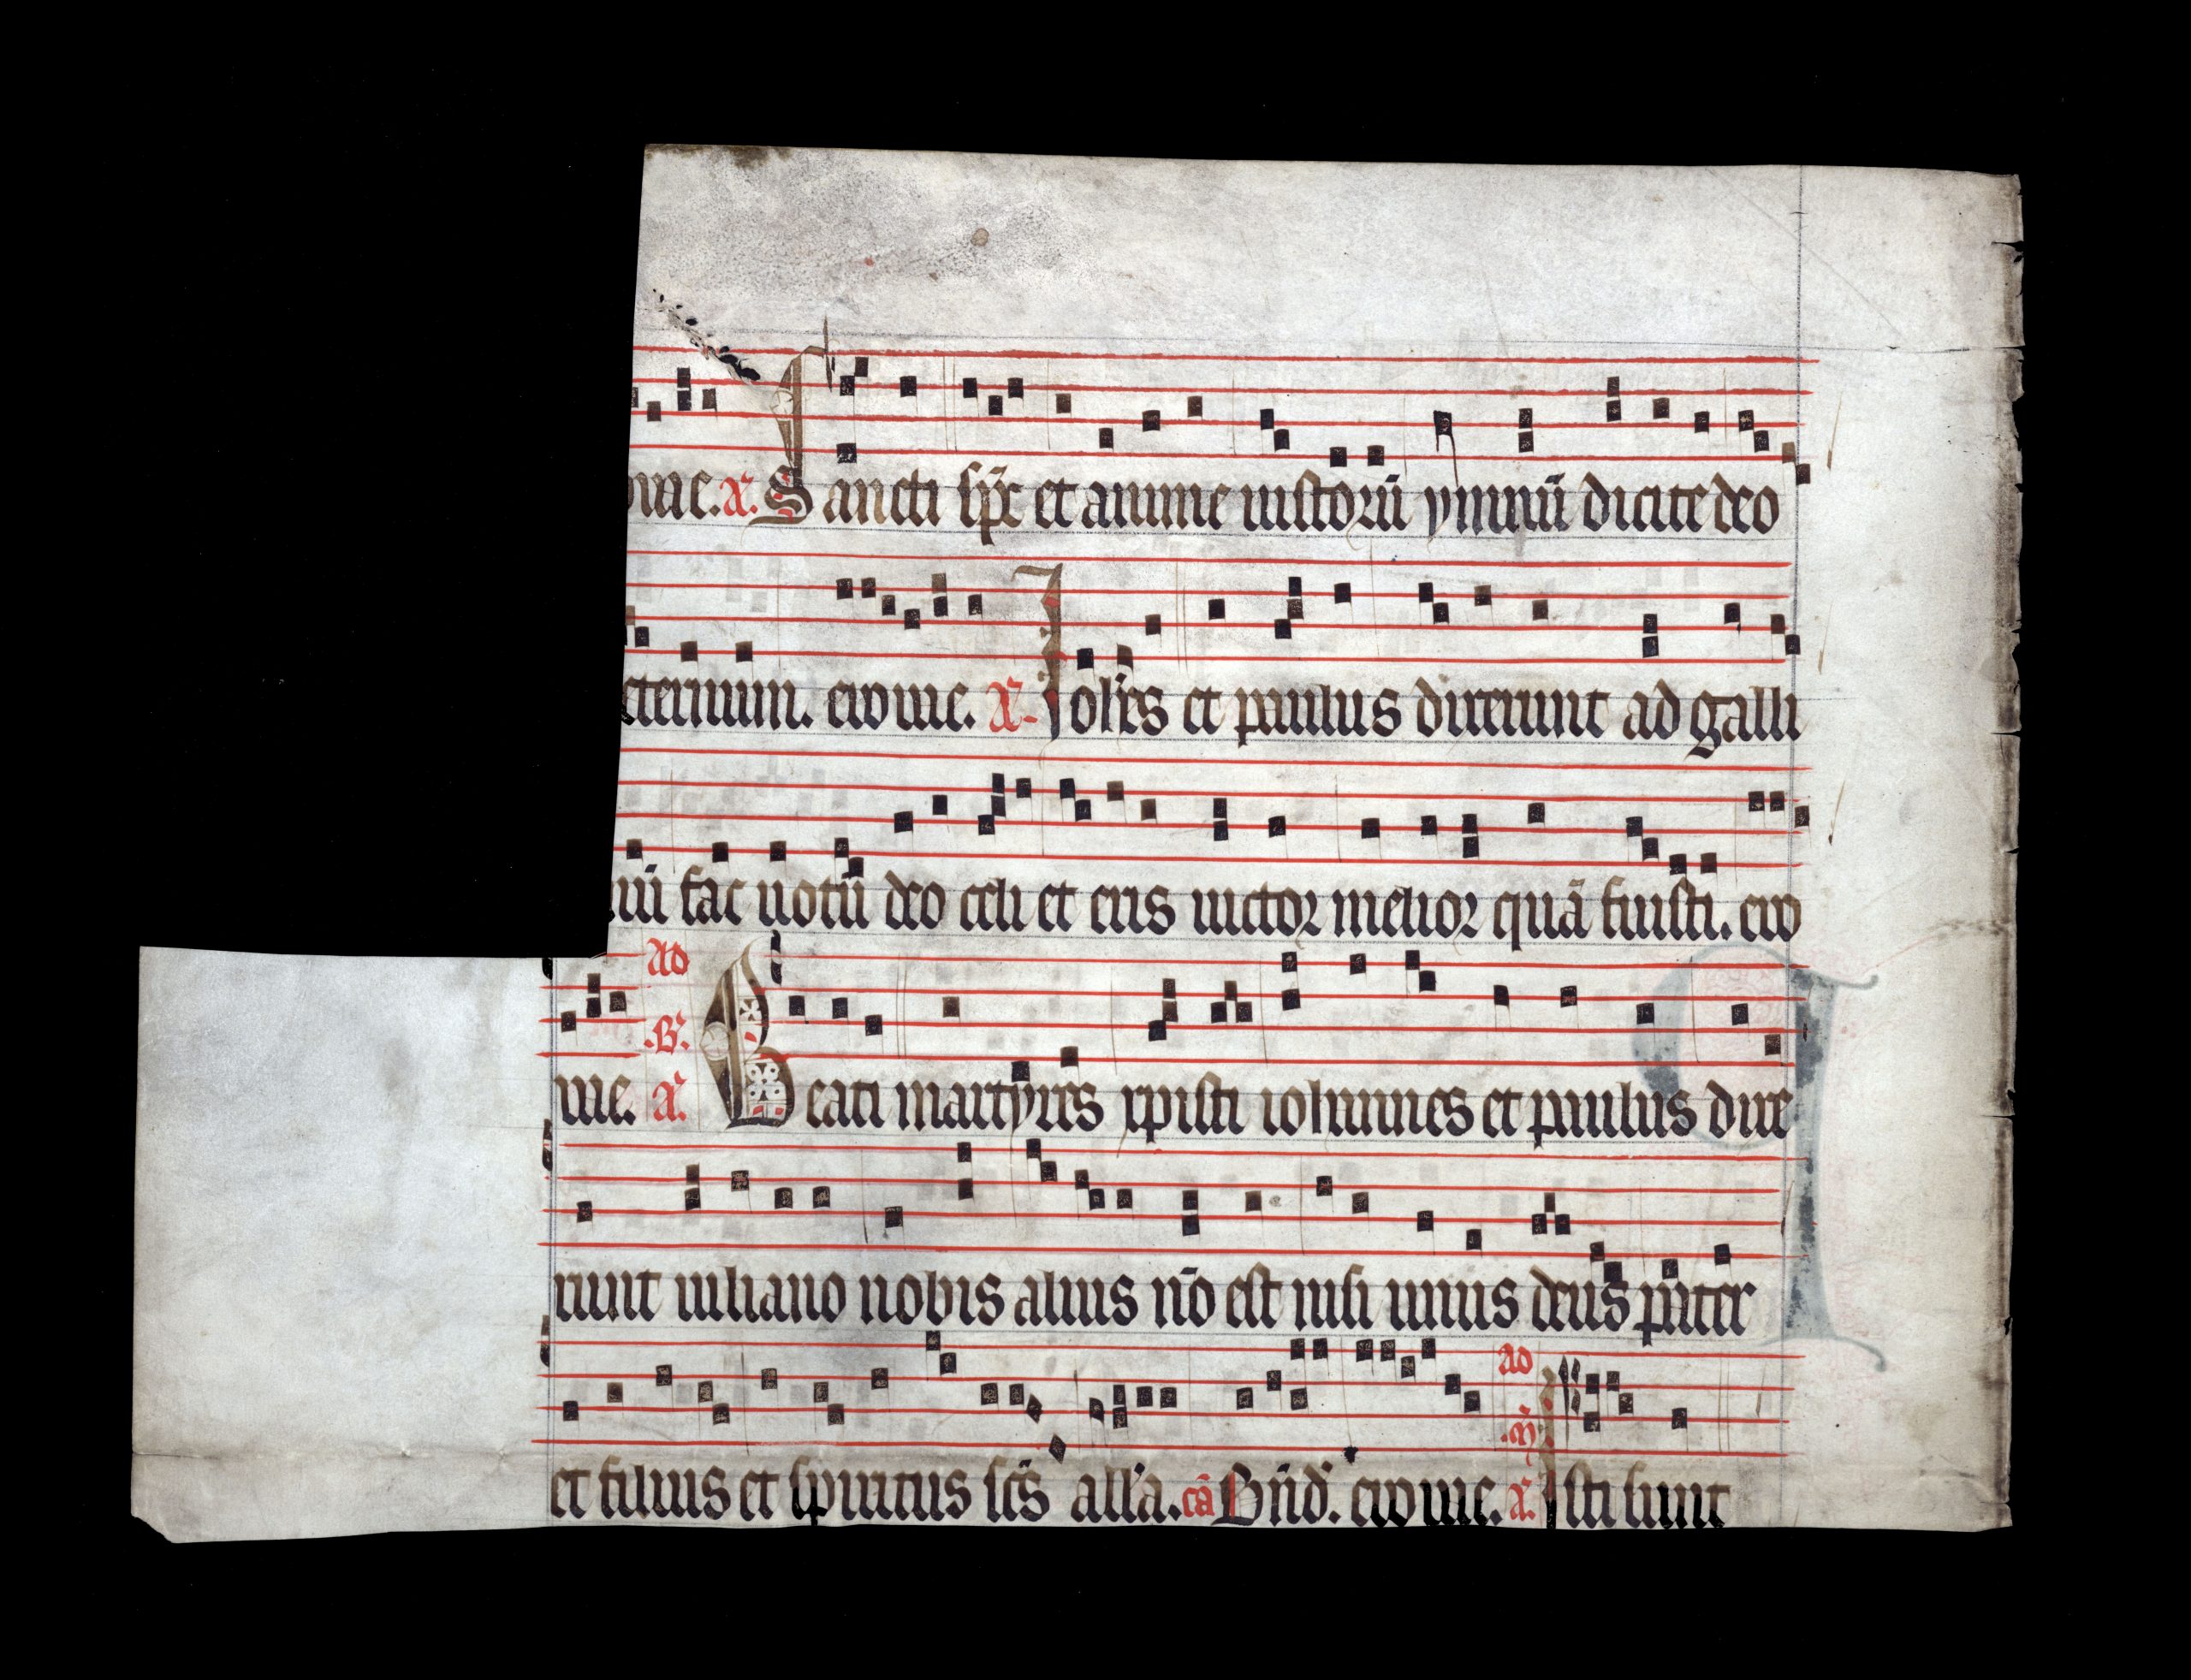 ouae. a. Sancti sp̄c et anime iustorū ymnū dicite deo
eternum. euouae. a. Joh̄es et paulus dixerunt ad galli
nū fac uotū deo celi et eris uictor melior quā fuisti. euo
uae. Ad .B. a. Beati martyres xpisti iohannes et paulus dixe
runt iuliano nobis alius nō est nisi unus deus pater
et filius et spiritus scs̄ all'a. cā Bn̄d'. euouae. Ad .m̄. a. Isti sunt